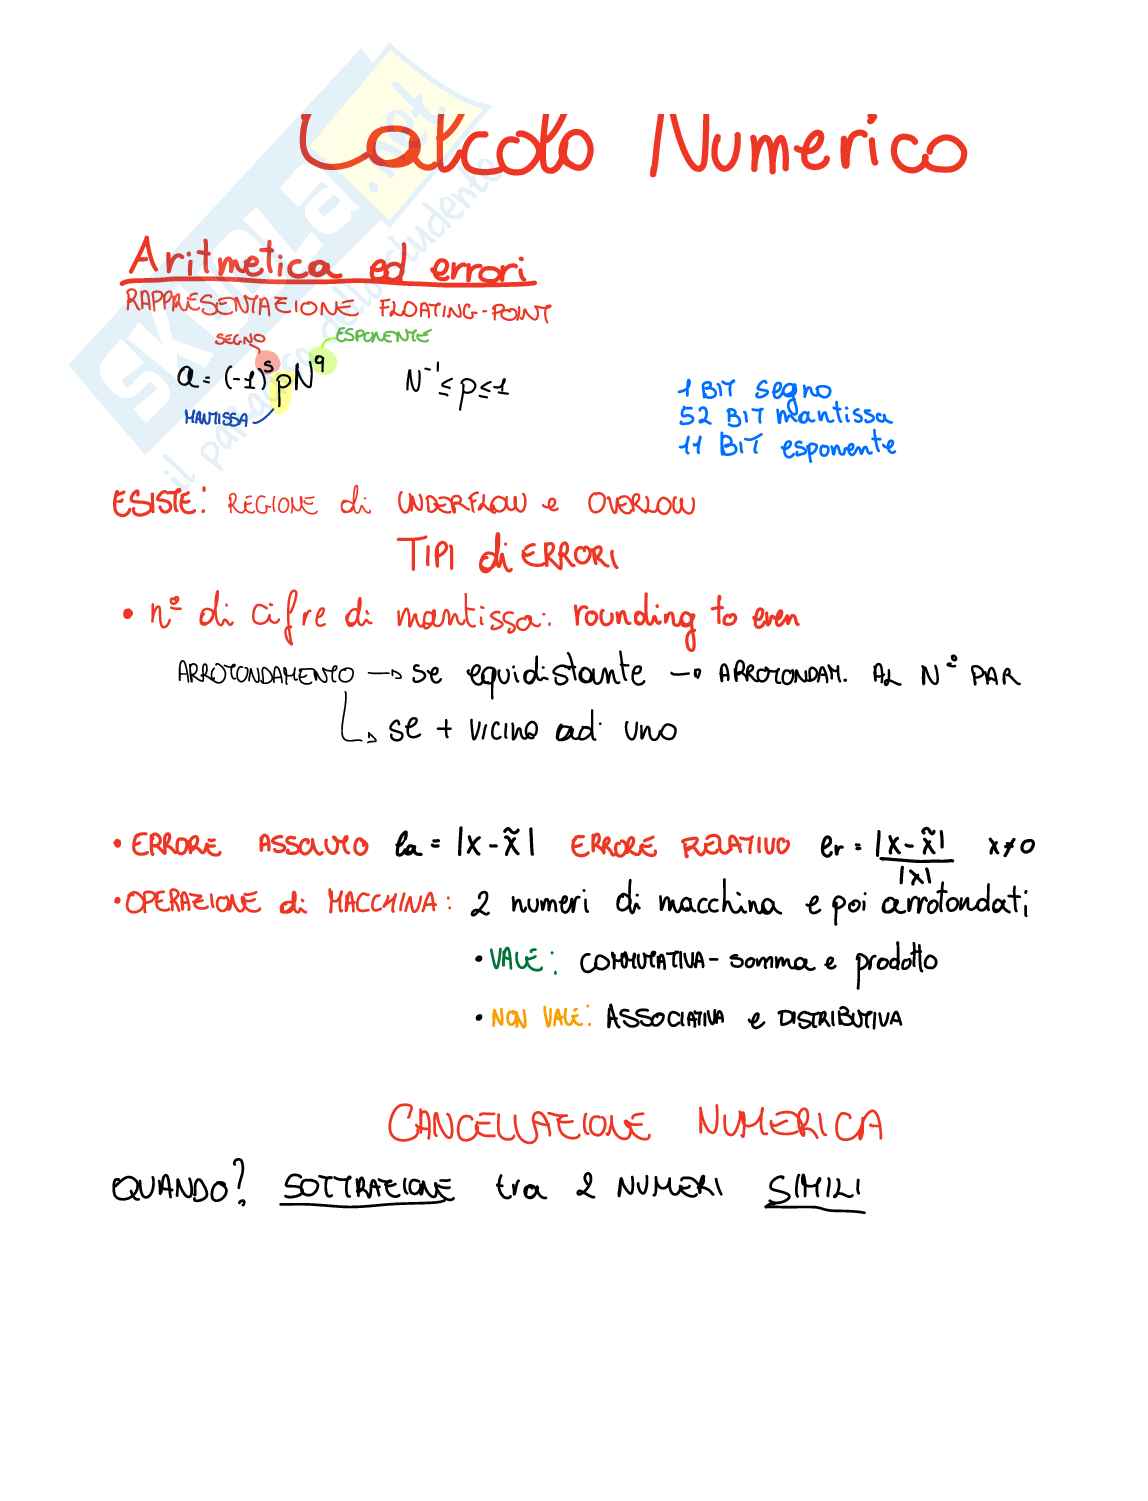 Calcolo Numerico
SKUOLA.net
il paradiso dello studente
Aritmetica ed errori
RAPPRESENTAZIONE FLOATING-POINT
SEGNO ESPONENTE
a = (-1)^s pN^q N^-1 ≤ p ≤ 1
MANTISSA
1 BIT segno
52 BIT mantissa
11 BIT esponente
ESISTE: REGIONE di UNDERFLOW e OVERLOW
TIPI di ERRORI
• nº di cifre di mantissa: rounding to even
ARROTONDAMENTO → se equidistante → ARROTONDAM. AL Nº PAR
↳ se + VICINO ad uno
• ERRORE ASSOLUTO ea = |x - x̃| ERRORE RELATIVO er = |x - x̃| / |x| x≠0
• OPERAZIONE di MACCHINA: 2 numeri di macchina e poi arrotondati
• VALE: COMMUTATIVA - somma e prodotto
• NON VALE: ASSOCIATIVA e DISTRIBUTIVA
CANCELLAZIONE NUMERICA
QUANDO? SOTTRAZIONE tra 2 NUMERI SIMILI